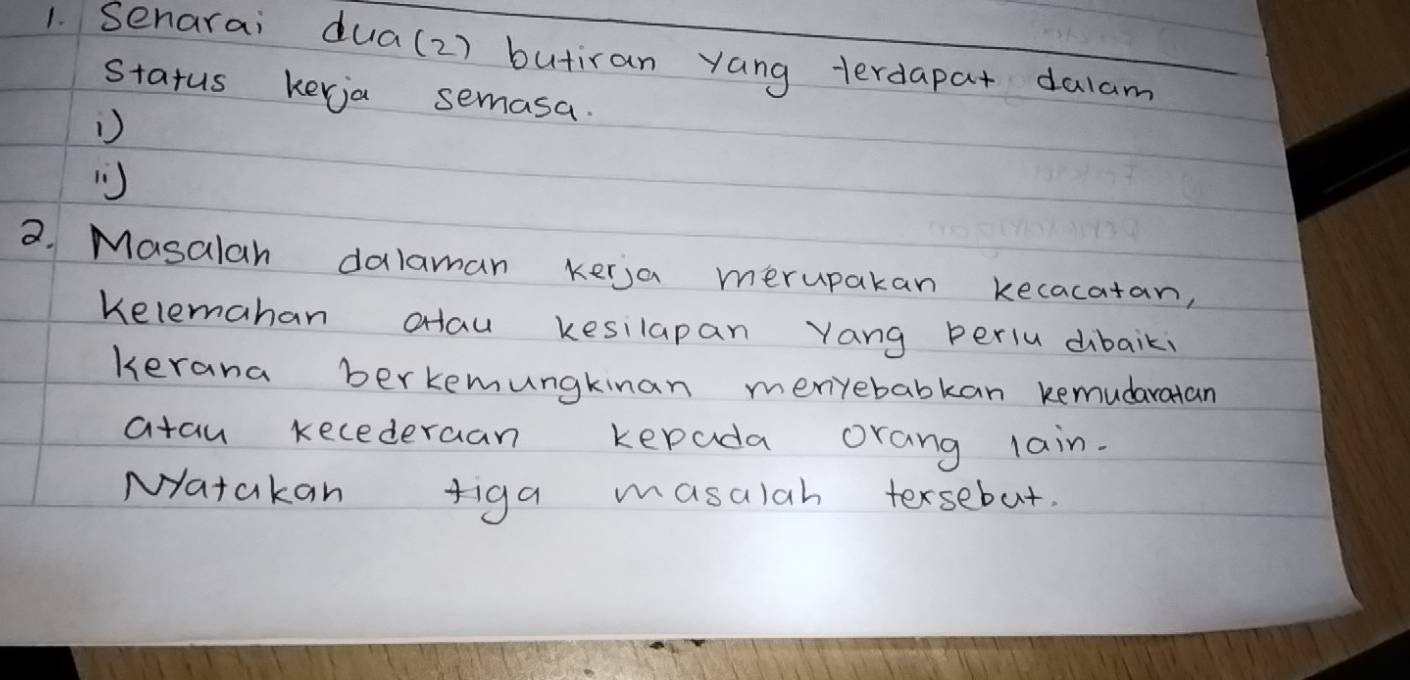 1. Senarai dua (2) butiran yang terdapat dalam
status kerja semasa.
i)
ii)
2. Masalah dalaman kerja merupakan kecacatan,
kelemahan atau kesilapan yang perlu dibaiki
kerana berkemungkinan menyebabkan kemudaratan
atau kecederaan kepada orang lain.
Nyatakan tiga masalah tersebut.